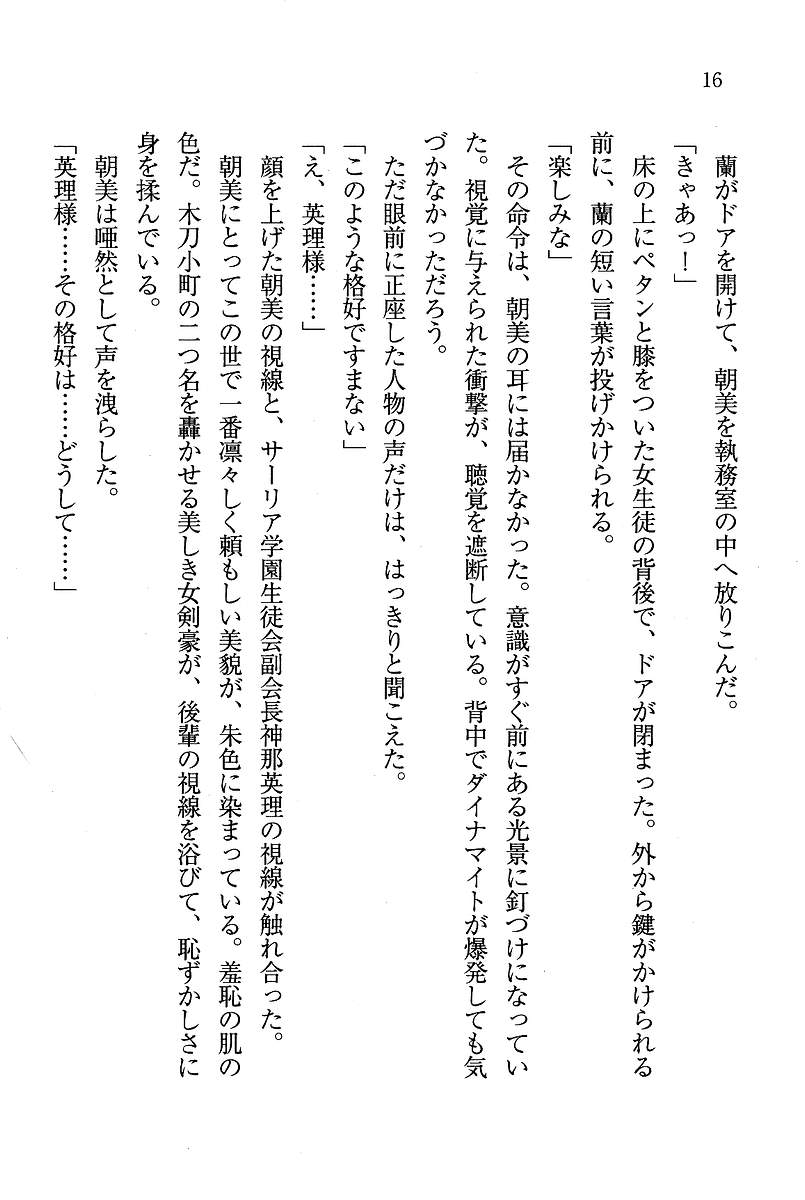 16
蘭がドアを開けて、朝美を執務室の中へ放りこんだ。
「きゃあっ！」
床の上にペタンと膝をついた女生徒の背後で、ドアが閉まった。外から鍵がかけられる
前に、蘭の短い言葉が投げかけられる。
「楽しみな」
その命令は、朝美の耳には届かなかった。意識がすぐ前にある光景に釘づけになってい
た。視覚に与えられた衝撃が、聴覚を遮断している。背中でダイナマイトが爆発しても気
づかなかっただろう。
ただ眼前に正座した人物の声だけは、はっきりと聞こえた。
「このような格好ですまない」
「え、英理様……」
顔を上げた朝美の視線と、サーリア学園生徒会副会長神那英理の視線が触れ合った。
朝美にとってこの世で一番凛々しく頼もしい美貌が、朱色に染まっている。羞恥の肌の
色だ。木刀小町の二つ名を轟かせる美しき女剣豪が、後輩の視線を浴びて、恥ずかしさに
身を揉んでいる。
朝美は唖然として声を洩らした。
「英理様……その格好は……どうして……」